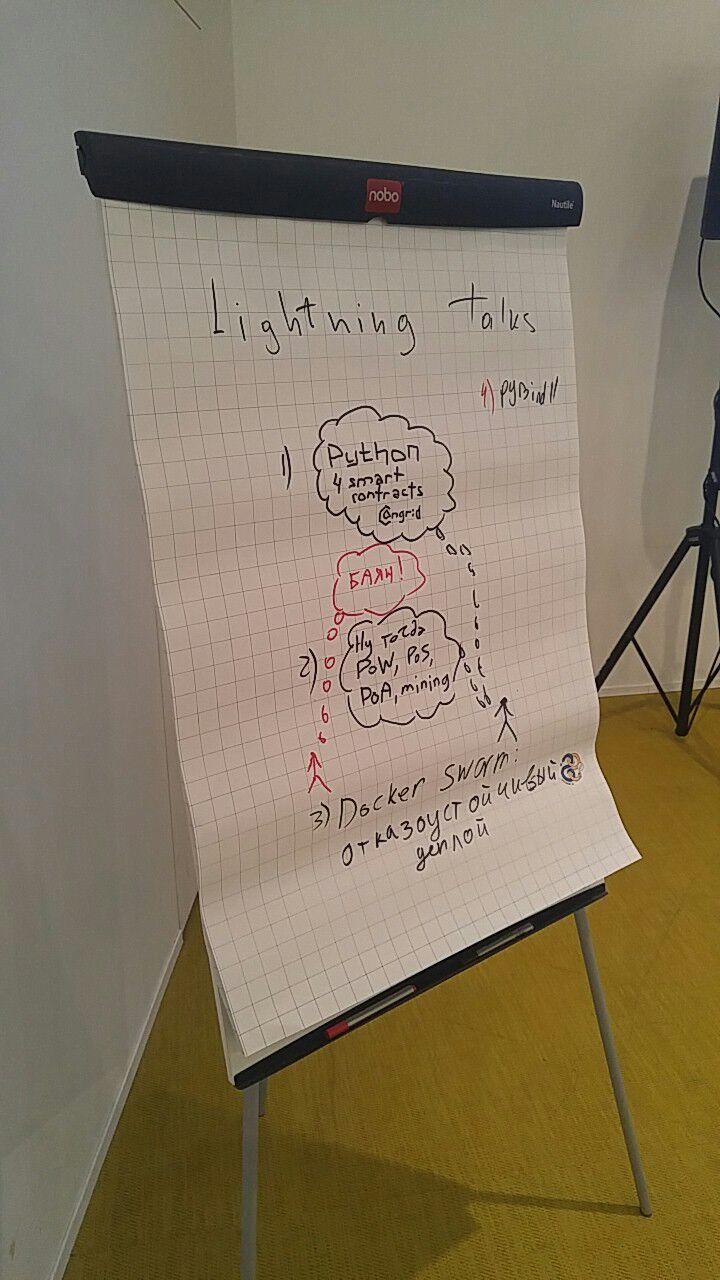 nobo
Nautile
Lightning Talks
4) PyBind11
1) Python
4 smart
contracts
@ngrid
БАЯН!
2) Ну тогда
PoW, PoS,
PoA, mining
3) Docker Swarm:
отказоустойчивый
деплой